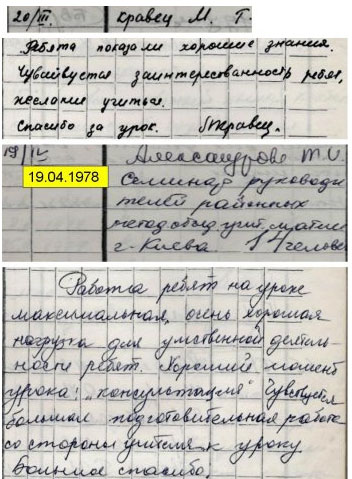 20/III. Кравец М. Т.
Ребята показали хорошие знания.
Чувствуется заинтересованность ребят,
желание учиться.
Спасибо за урок. Кравец.
19/IV Александрова Т.И.
19.04.1978 Семинар руководи
телей районных
метод объед учит. матем
г. Киева 14 челове
Работа ребят на уроке
максимальная, очень хорошая
нагрузка для умственной деятель-
ности ребят. Хороший момент
урока: "консультация" Чувствуется
большая подготовительная работа
со стороны учителя к уроку
Большое спасибо.